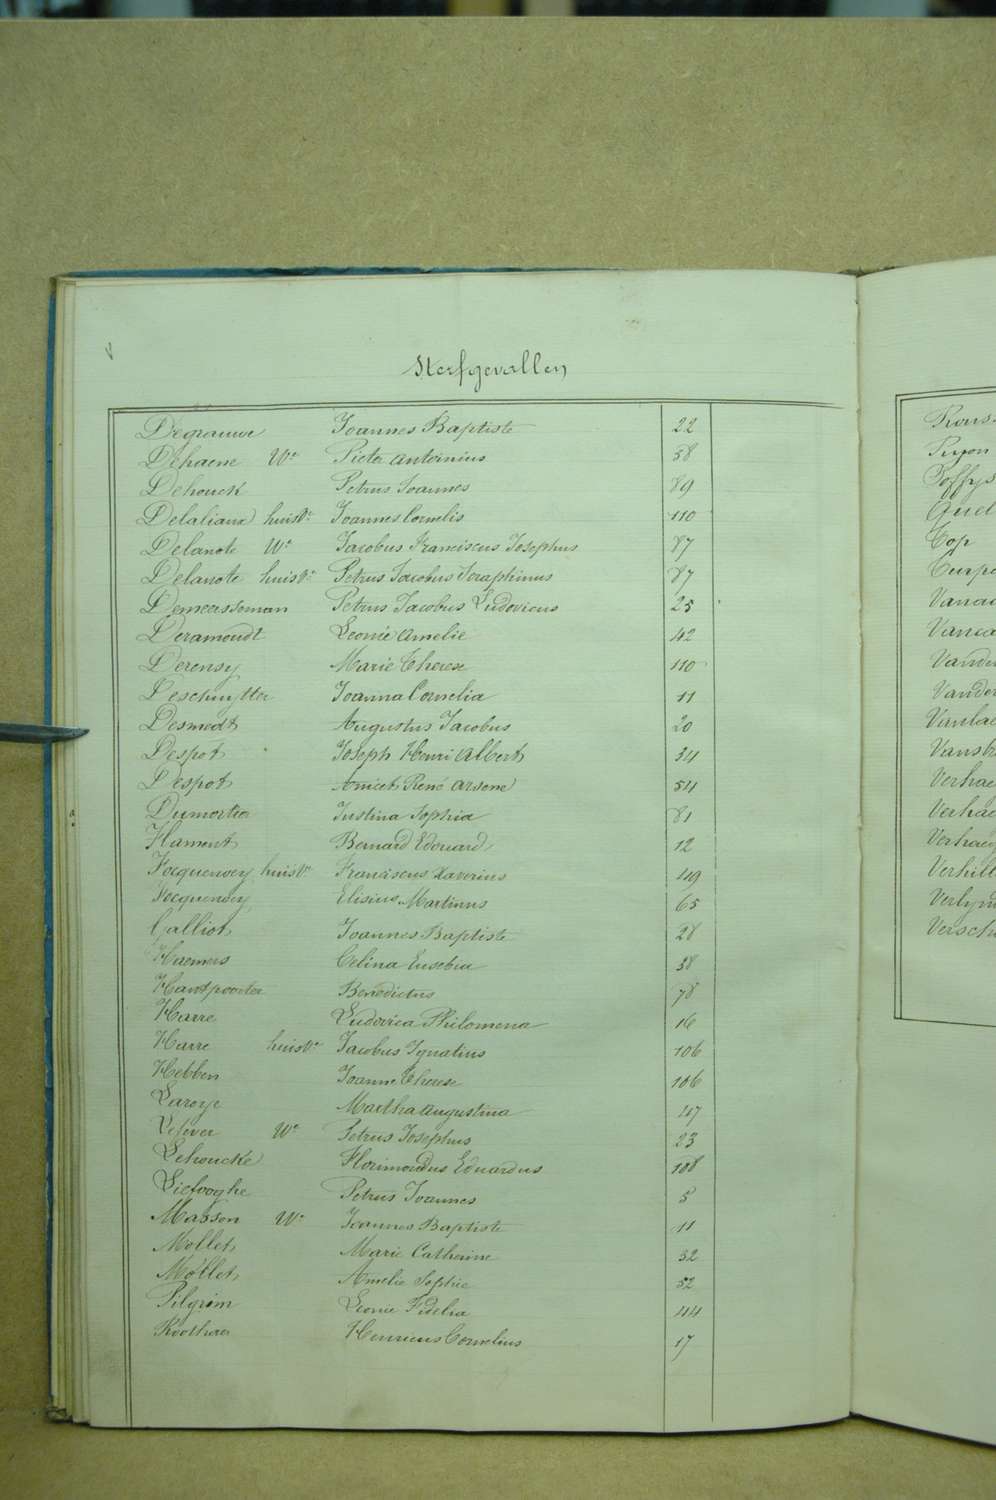 Sterfgevallen
Degrauwe Joannes Baptiste 22
Dehaene We Pieter Antoinius 58
Dehouck Petrus Joannes 89
Delaliaux huisve Joannes Cornelis 110
Delanote We Jacobus Franciscus Josephus 87
Delanote huisve Petrus Jacobus Seraphinus 87
Demeersseman Petrus Jacobus Ludovicus 25
Deramoudt Leonie Amelie 42
Derensy Marie Therese 110
Deschuytter Joanna Cornelia 11
Desmedt Augustus Jacobus 20
Despot Joseph Henri Albert 34
Despot Anicet René Arsene 54
Dumortier Justina Sophia 81
Flament Bernard Edouard 12
Focquenoey huisve Franciscus Xaverius 49
Focquenoey Elisius Martinus 65
Galliot Joannes Baptiste 28
Haemers Celina Eusebia 38
Handpoorter Benedictus 78
Harre Ludovica Philomena 16
Harre huisve Jacobus Ignatius 106
Hebben Joanne Therese 106
Laroye Martha Augustina 47
Lefever We Petrus Josephus 23
Lehoucke Florimondus Eduardus 108
Liefooghe Petrus Joannes 5
Masson We Joannes Baptiste 11
Mollet Marie Catherine 32
Mollet Amelie Sophie 52
Pilgrim Leonie Fidelia 44
Roothaer Henricus Cornelius 17